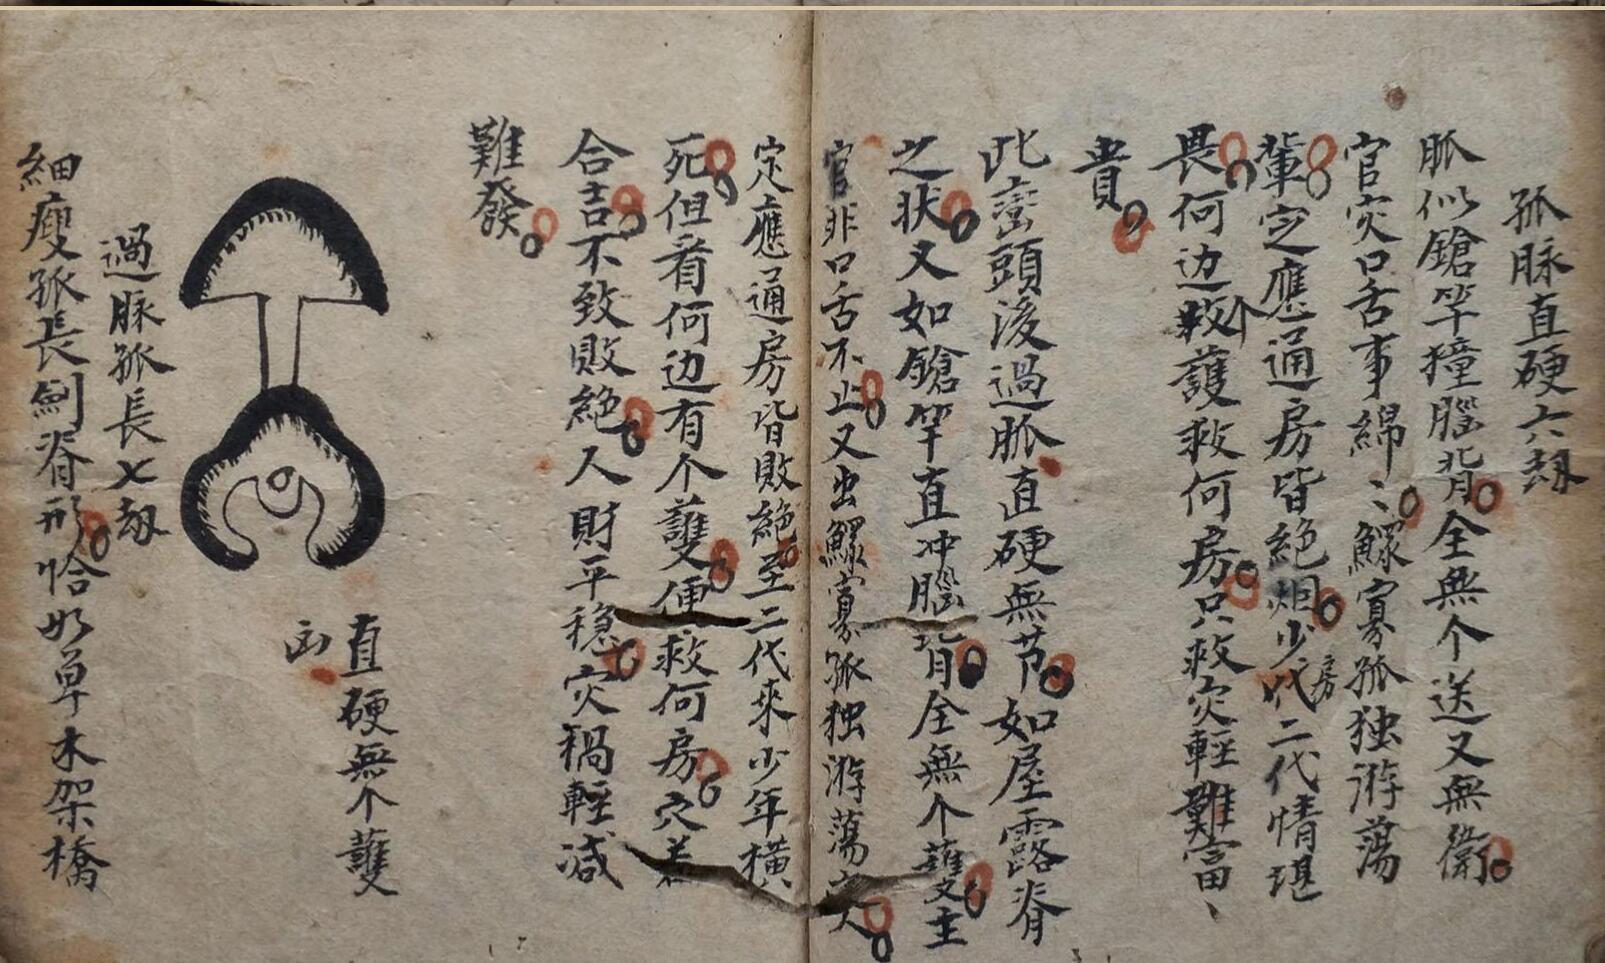 孤脉直硬六刼
脈似鎗竿撞腦背全無个送又無衛
官灾口舌事綿〻鰥寡孤独游蕩
輩定應通房皆絕烟少代房二代情堪
畏何边救个護救何房只救灾輕難富
貴
此巒頭後過脈直硬無节如屋露脊
之状又如鎗竿直冲腦背全無个護主
官非口舌不止又出鰥寡孤独游蕩之人
定應通房皆敗絕至二代來少年橫
死但看何边有个護便救何房穴若
合吉不致敗絕人財平穩灾禍輕減
難發
直硬無个護
凶
過脉孤長七刼
細瘦孤長劍脊形恰如单木架橋